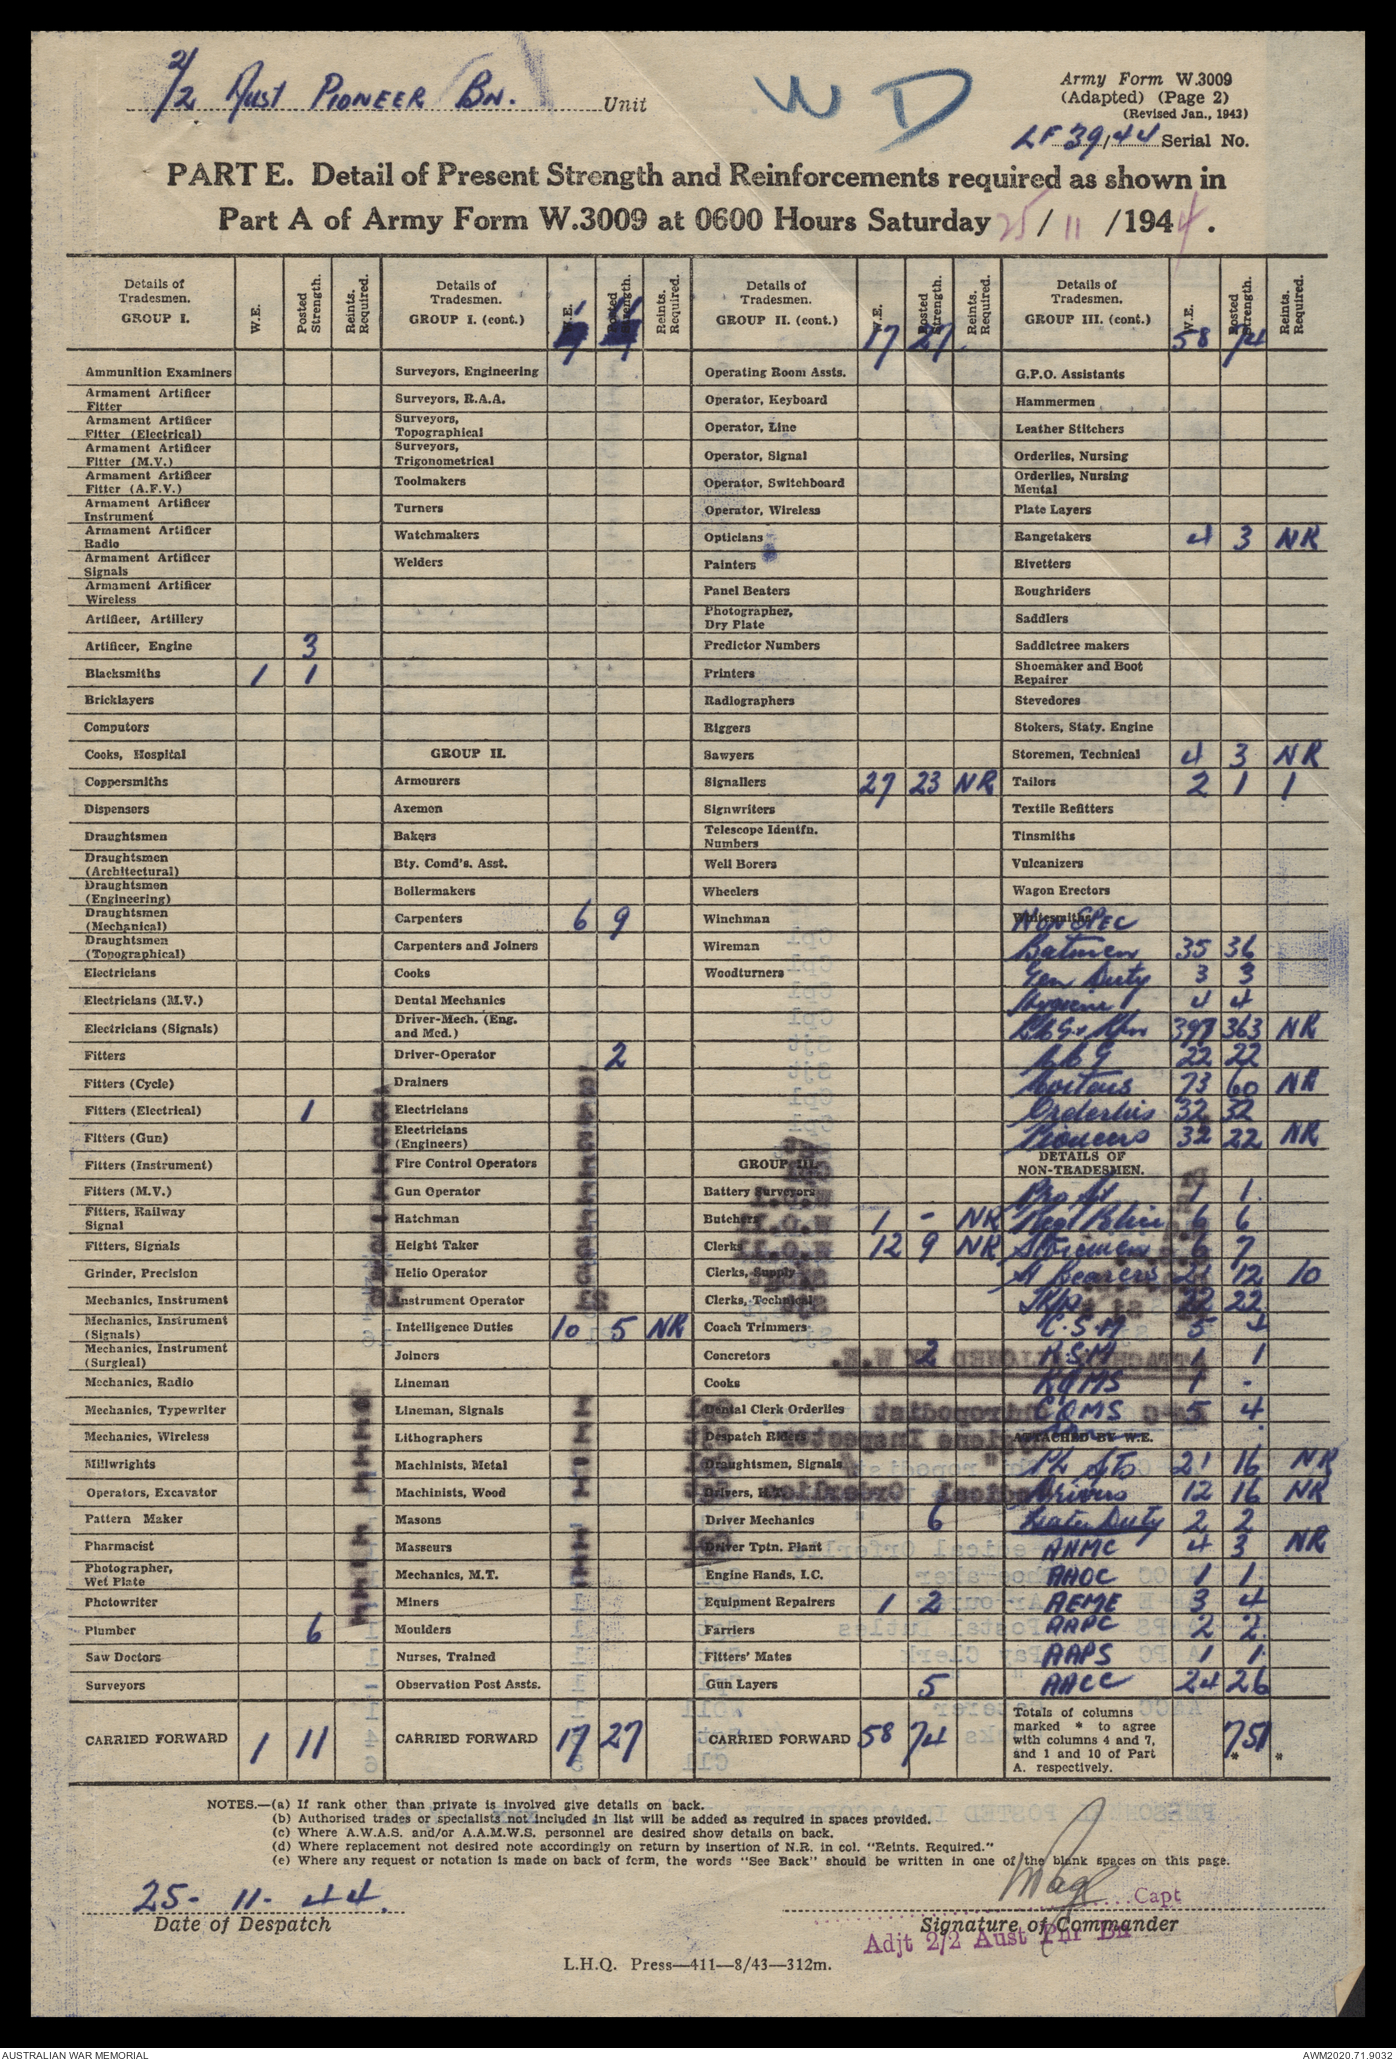 2/2 Aust PIONEER BN. Unit
WD
Army Form W.3009
(Adapted) (Page 2)
(Revised Jan., 1943)
LF 39/44 Serial No.
PART E. Detail of Present Strength and Reinforcements required as shown in
Part A of Army Form W.3009 at 0600 Hours Saturday 25/11/1944.
Details of Tradesmen. GROUP I. W.E. Posted Strength. Reints. Required.
Ammunition Examiners
Armament Artificer Fitter
Armament Artificer Fitter (Electrical)
Armament Artificer Fitter (M.V.)
Armament Artificer Fitter (A.F.V.)
Armament Artificer Instrument
Armament Artificer Radio
Armament Artificer Signals
Armament Artificer Wireless
Artificer, Artillery
Artificer, Engine 3
Blacksmiths 1 1
Bricklayers
Computors
Cooks, Hospital
Coppersmiths
Dispensers
Draughtsmen
Draughtsmen (Architectural)
Draughtsmen (Engineering)
Draughtsmen (Mechanical)
Draughtsmen (Topographical)
Electricians
Electricians (M.V.)
Electricians (Signals)
Fitters
Fitters (Cycle)
Fitters (Electrical) 1
Fitters (Gun)
Fitters (Instrument)
Fitters (M.V.)
Fitters, Railway Signal
Fitters, Signals
Grinder, Precision
Mechanics, Instrument
Mechanics, Instrument (Signals)
Mechanics, Instrument (Surgical)
Mechanics, Radio
Mechanics, Typewriter
Mechanics, Wireless
Millwrights
Operators, Excavator
Pattern Maker
Pharmacist
Photographer, Wet Plate
Photowriter
Plumber 6
Saw Doctors
Surveyors
CARRIED FORWARD 1 11
Details of Tradesmen. GROUP I. (cont.) W.E. Posted Strength. Reints. Required.
Surveyors, Engineering
Surveyors, R.A.A.
Surveyors, Topographical
Surveyors, Trigonometrical
Toolmakers
Turners
Watchmakers
Welders
GROUP II.
Armourers
Axemen
Bakers
Bty. Comd's. Asst.
Boilermakers
Carpenters 6 9
Carpenters and Joiners
Cooks
Dental Mechanics
Driver-Mech. (Eng. and Med.)
Driver-Operator 2
Drainers
Electricians
Electricians (Engineers)
Fire Control Operators
Gun Operator
Hatchman
Height Taker
Helio Operator
Instrument Operator
Intelligence Duties 10 5 NR
Joiners
Lineman
Lineman, Signals
Lithographers
Machinists, Metal
Machinists, Wood
Masons
Masseurs
Mechanics, M.T.
Miners
Moulders
Nurses, Trained
Observation Post Assts.
CARRIED FORWARD 17 27
Details of Tradesmen. GROUP II. (cont.) W.E. Posted Strength. Reints. Required.
17 27
Operating Room Assts.
Operator, Keyboard
Operator, Line
Operator, Signal
Operator, Switchboard
Operator, Wireless
Opticians
Painters
Panel Beaters
Photographer, Dry Plate
Predictor Numbers
Printers
Radiographers
Riggers
Sawyers
Signallers 27 23 NR
Signwriters
Telescope Identfn. Numbers
Well Borers
Wheelers
Winchman
Wireman
Woodturners
GROUP III.
Battery Surveyors
Butchers 1 - NR
Clerks 12 9 NR
Clerks, Supply
Clerks, Technical
Coach Trimmers
Concretors 2
Cooks
Dental Clerk Orderlies
Despatch Riders
Draughtsmen, Signals
Drivers, H.T.
Driver Mechanics 6
Driver Tptn. Plant
Engine Hands, I.C.
Equipment Repairers 1 2
Farriers
Fitters' Mates
Gun Layers 5
CARRIED FORWARD 58 74
Details of Tradesmen. GROUP III. (cont.) W.E. Posted Strength. Reints. Required.
58 74
G.P.O. Assistants
Hammermen
Leather Stitchers
Orderlies, Nursing
Orderlies, Nursing Mental
Plate Layers
Rangetakers 4 3 NR
Rivetters
Roughriders
Saddlers
Saddletree makers
Shoemaker and Boot Repairer
Stevedores
Stokers, Staty. Engine
Storemen, Technical 4 3 NR
Tailors 2 1 1
Textile Refitters
Tinsmiths
Vulcanizers
Wagon Erectors
Whitesmiths
NON SPEC
Batmen 35 36
Gen Duty 3 3
Hygiene 4 4
397 363 NR
22 22
Mortars 73 60 NR
Orderlies 32 32
Pioneers 32 22 NR
DETAILS OF NON-TRADESMEN.
Pro Sgt 1 1
Reg Police 6 6
Storemen 6 7
St Bearers 21 12 10
22 22
C.S.M 5 4
R.S.M 1 1
RQMS 1 -
CQMS 5 4
ATTACHED BY W.E.
Pl Sgts 21 16 NR
Drivers 12 16 NR
Water Duty 2 2
AAMC 4 3 NR
AAOC 1 1
AEME 3 4
AAPC 2 2
AAPS 1 1
AACC 24 26
Totals of columns marked * to agree with columns 4 and 7, and 1 and 10 of Part A. respectively. 751 * *
NOTES.—(a) If rank other than private is involved give details on back.
(b) Authorised trades or specialists not included in list will be added as required in spaces provided.
(c) Where A.W.A.S. and/or A.A.M.W.S. personnel are desired show details on back.
(d) Where replacement not desired note accordingly on return by insertion of N.R. in col. "Reints. Required."
(e) Where any request or notation is made on back of form, the words "See Back" should be written in one of the blank spaces on this page.
25-11-44.
Date of Despatch
Capt
Signature of Commander
Adjt 2/2 Aust Pnr Bn
L.H.Q. Press—411—8/43—312m.
AUSTRALIAN WAR MEMORIAL
AWM2020.71.9032